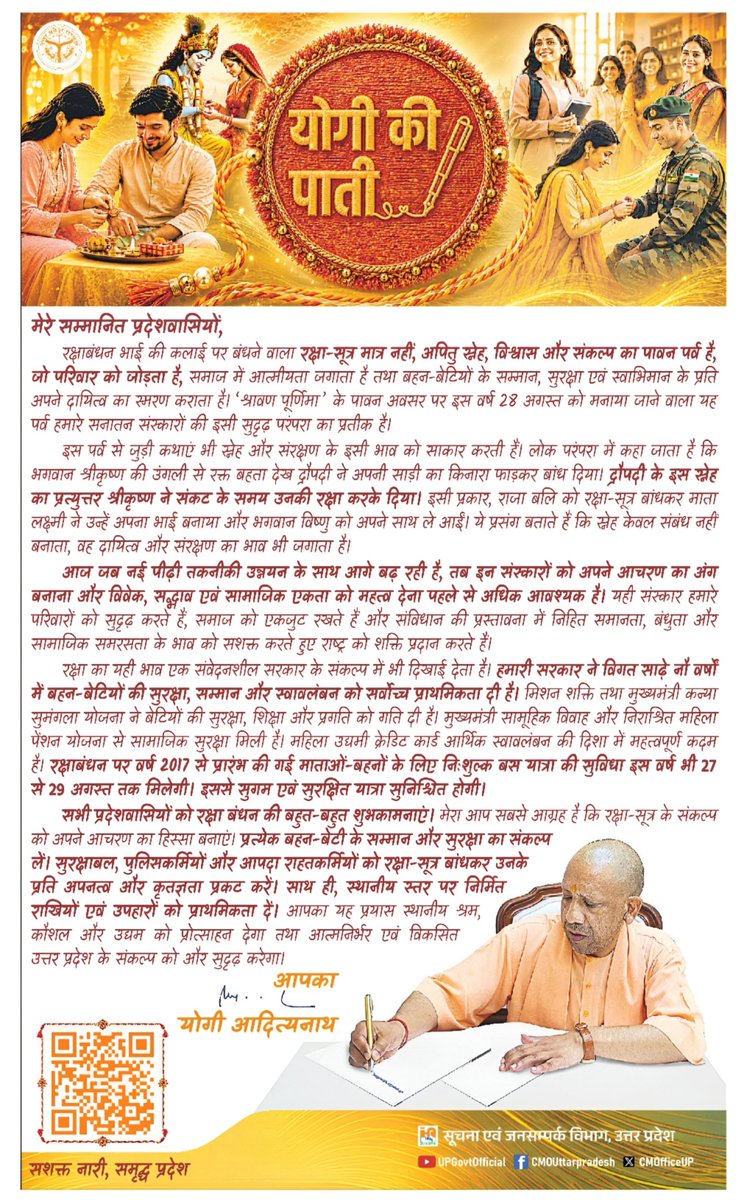 योगी की
पाती
मेरे सम्मानित प्रदेशवासियों,
रक्षाबंधन भाई की कलाई पर बंधने वाला रक्षा-सूत्र मात्र नहीं, अपितु स्नेह, विश्वास और संकल्प का पावन पर्व है,
जो परिवार को जोड़ता है, समाज में आत्मीयता जगाता है तथा बहन-बेटियों के सम्मान, सुरक्षा एवं स्वाभिमान के प्रति
अपने दायित्व का स्मरण कराता है। 'श्रावण पूर्णिमा' के पावन अवसर पर इस वर्ष 28 अगस्त को मनाया जाने वाला यह
पर्व हमारे सनातन संस्कारों की इसी सुदृढ़ परंपरा का प्रतीक है।
इस पर्व से जुड़ी कथाएं भी स्नेह और संरक्षण के इसी भाव को साकार करती हैं। लोक परंपरा में कहा जाता है कि
भगवान श्रीकृष्ण की उंगली से रक्त बहता देख द्रौपदी ने अपनी साड़ी का किनारा फाड़कर बांध दिया। द्रौपदी के इस स्नेह
का प्रत्युत्तर श्रीकृष्ण ने संकट के समय उनकी रक्षा करके दिया। इसी प्रकार, राजा बलि को रक्षा-सूत्र बांधकर माता
लक्ष्मी ने उन्हें अपना भाई बनाया और भगवान विष्णु को अपने साथ ले आईं। ये प्रसंग बताते हैं कि स्नेह केवल संबंध नहीं
बनाता, वह दायित्व और संरक्षण का भाव भी जगाता है।
आज जब नई पीढ़ी तकनीकी उन्नयन के साथ आगे बढ़ रही है, तब इन संस्कारों को अपने आचरण का अंग
बनाना और विवेक, सद्भाव एवं सामाजिक एकता को महत्व देना पहले से अधिक आवश्यक है। यही संस्कार हमारे
परिवारों को सुदृढ़ करते हैं, समाज को एकजुट रखते हैं और संविधान की प्रस्तावना में निहित समानता, बंधुता और
सामाजिक समरसता के भाव को सशक्त करते हुए राष्ट्र को शक्ति प्रदान करते हैं।
रक्षा का यही भाव एक संवेदनशील सरकार के संकल्प में भी दिखाई देता है। हमारी सरकार ने विगत साढ़े नौ वर्षों
में बहन-बेटियों की सुरक्षा, सम्मान और स्वावलंबन को सर्वोच्च प्राथमिकता दी है। मिशन शक्ति तथा मुख्यमंत्री कन्या
सुमंगला योजना ने बेटियों की सुरक्षा, शिक्षा और प्रगति को गति दी है। मुख्यमंत्री सामूहिक विवाह और निराश्रित महिला
पेंशन योजना से सामाजिक सुरक्षा मिली है। महिला उद्यमी क्रेडिट कार्ड आर्थिक स्वावलंबन की दिशा में महत्वपूर्ण कदम
है। रक्षाबंधन पर वर्ष 2017 से प्रारंभ की गई माताओं-बहनों के लिए निःशुल्क बस यात्रा की सुविधा इस वर्ष भी 27
से 29 अगस्त तक मिलेगी। इससे सुगम एवं सुरक्षित यात्रा सुनिश्चित होगी।
सभी प्रदेशवासियों को रक्षा बंधन की बहुत-बहुत शुभकामनाएं। मेरा आप सबसे आग्रह है कि रक्षा-सूत्र के संकल्प
को अपने आचरण का हिस्सा बनाएं। प्रत्येक बहन-बेटी के सम्मान और सुरक्षा का संकल्प
लें। सुरक्षाबल, पुलिसकर्मियों और आपदा राहतकर्मियों को रक्षा-सूत्र बांधकर उनके
प्रति अपनत्व और कृतज्ञता प्रकट करें। साथ ही, स्थानीय स्तर पर निर्मित
राखियों एवं उपहारों को प्राथमिकता दें। आपका यह प्रयास स्थानीय श्रम,
कौशल और उद्यम को प्रोत्साहन देगा तथा आत्मनिर्भर एवं विकसित
उत्तर प्रदेश के संकल्प को और सुदृढ़ करेगा।
आपका
योगी आदित्यनाथ
सूचना एवं जनसम्पर्क विभाग, उत्तर प्रदेश
UPGovtOfficial CMOUttarpradesh CMOfficeUP
सशक्त नारी, समृद्ध प्रदेश